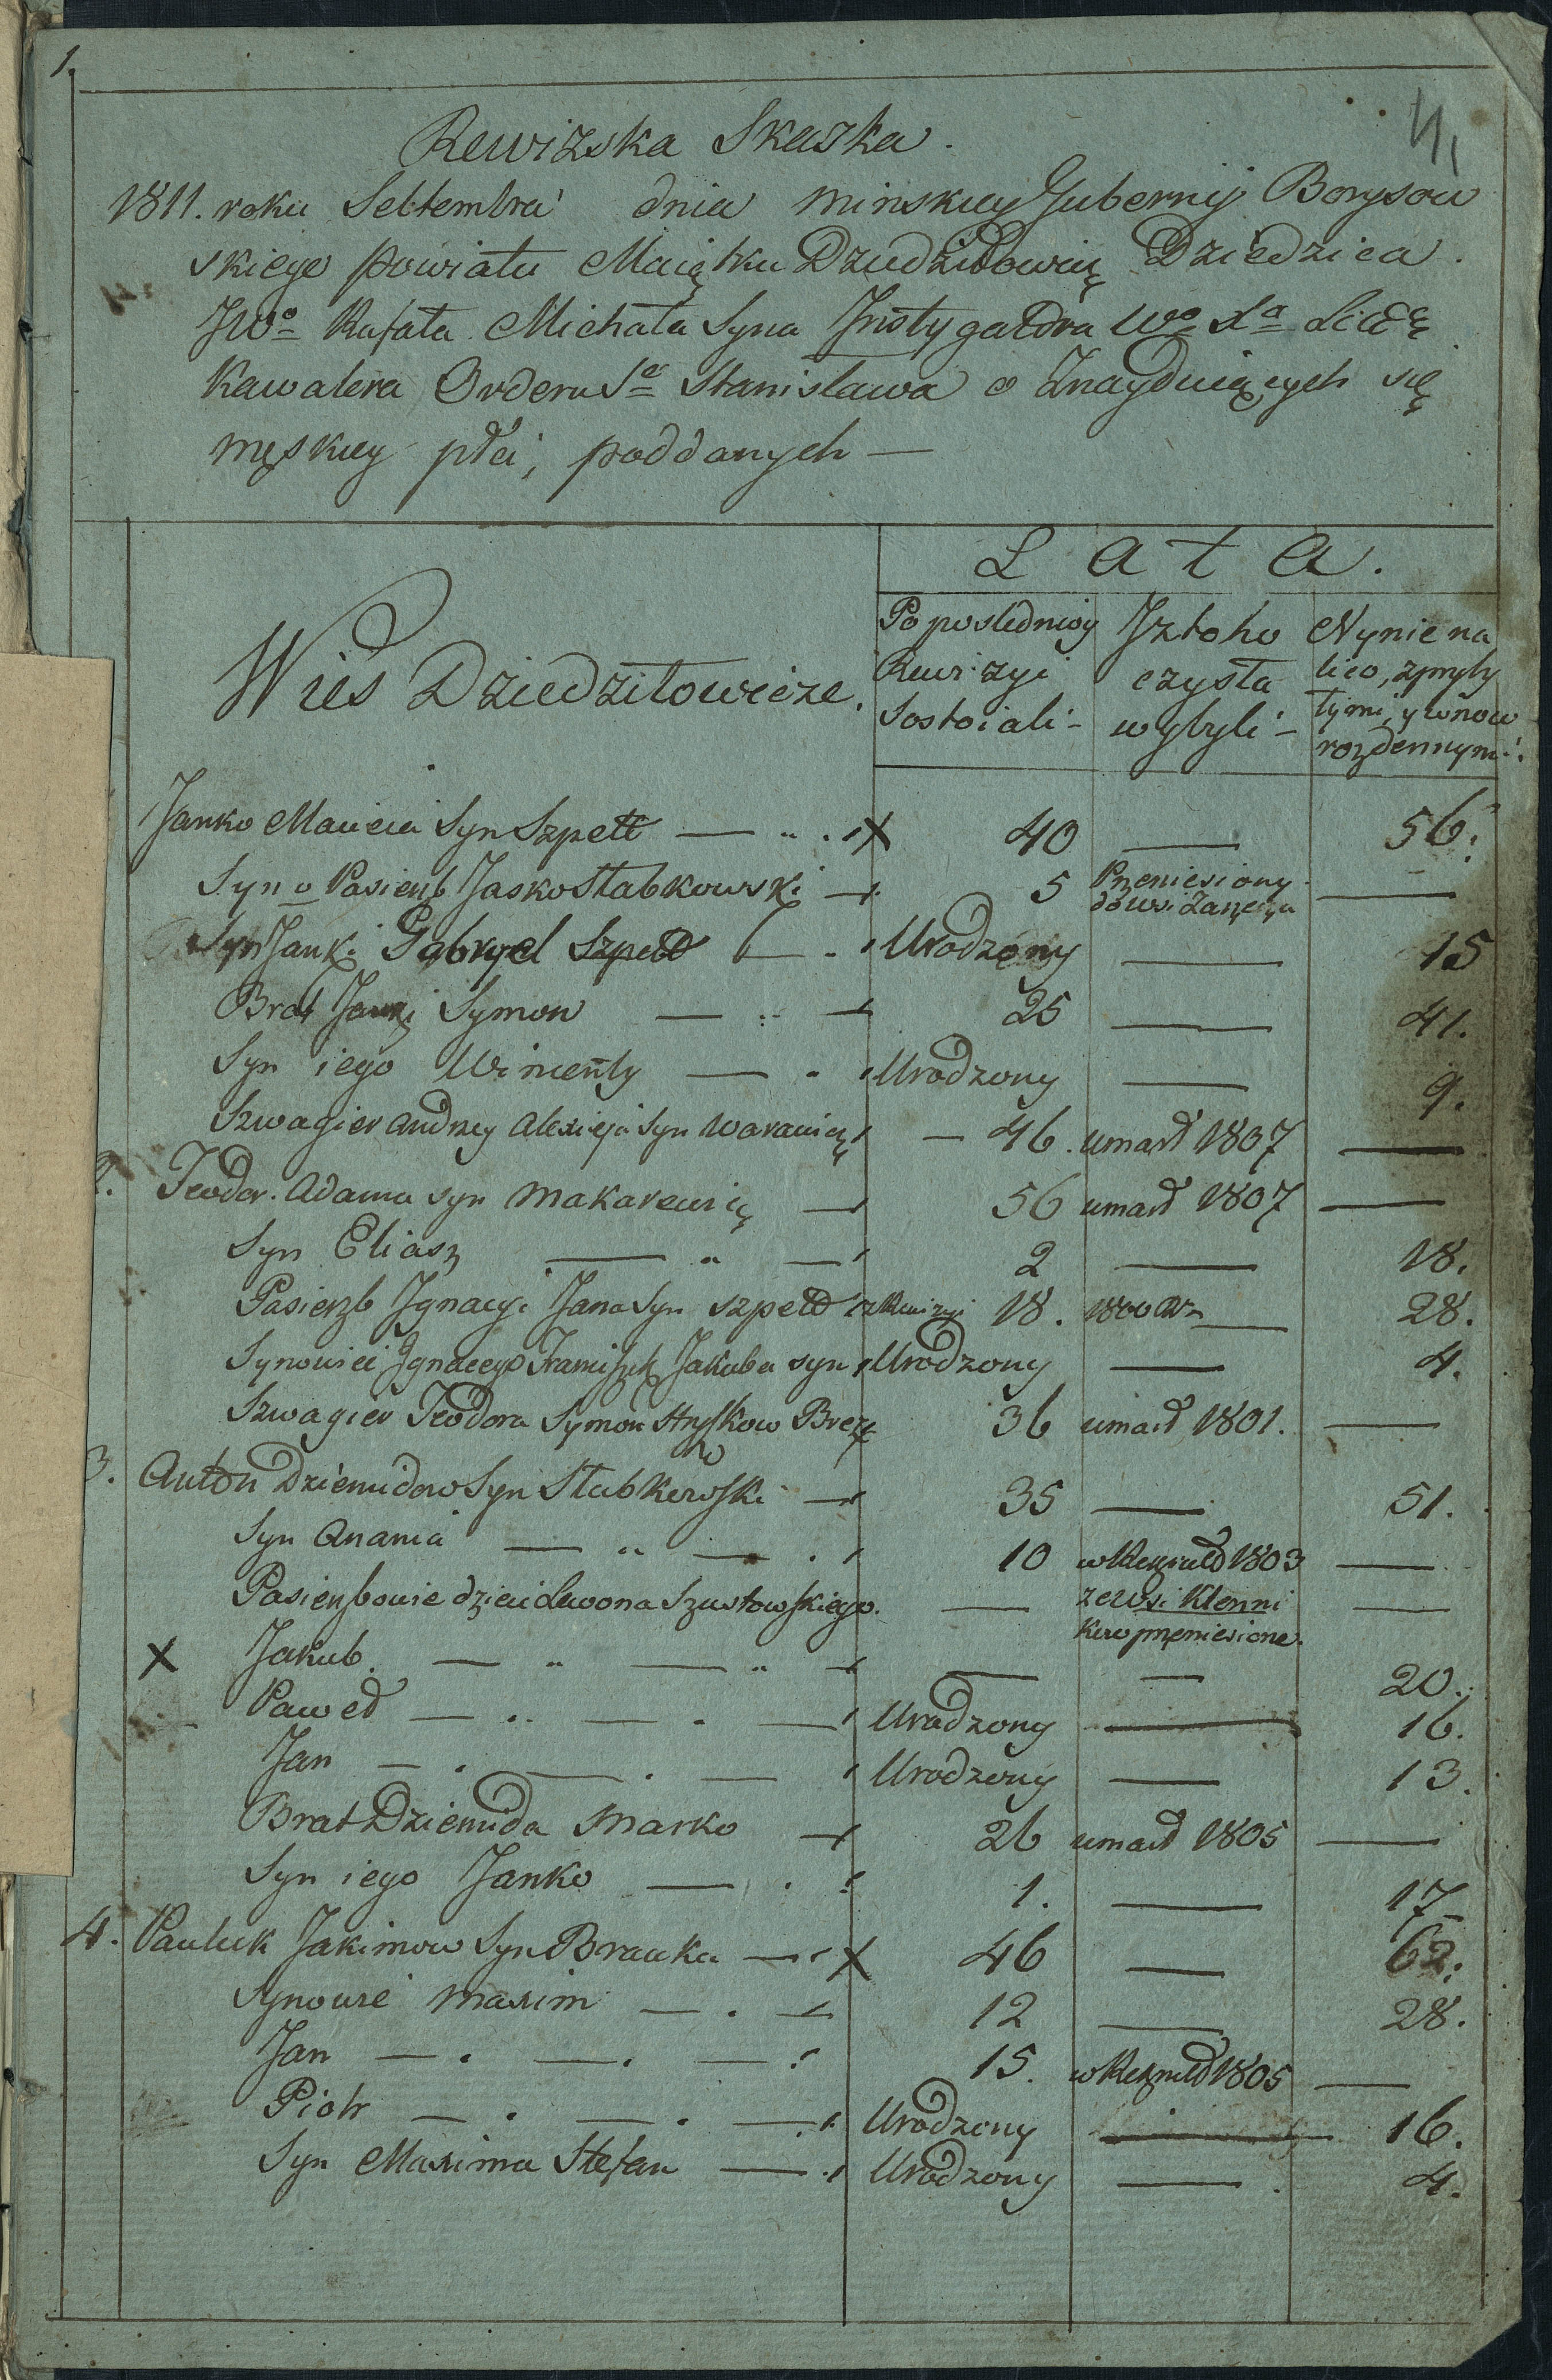 1.
4
Rewizska Skaska.
1811. roku Sebtembra dnia Minskiey Gubernij Borysow
skiego powiatu Maiętku Dziedzica.
JWo Rafała Michała Syna Jnstygatora Wo Xa
Kawalera Orderu So Stanisława o Znayduiących się
męskiey płci, poddanych —
Lata.
Wies Dziedziłowicze.
Po posledniey Rewizyi Sostoiali -
Jztoho czysła wybyli -
Nynie na lico, z prybyłymi, y wnow rozdennymi.
Janko Macieia Syn Szpett — X 40 — 56.
Syn o Pasierb Jasko Stabkowski — 5 Przeniesiony do wsi —
Syn Janki Gabryel Szpett — Urodzony — 15
Brat Janki Symon — 25 — 41.
Syn iego Wincenty — Urodzony — 9.
Szwagier Andrzey Alexieja Syn — 46. umarł 1807 —
2. Teodor Adama syn Makarewicz — 56 umarł 1807 —
Syn Eliasz — 2 — 18.
Pasierzb Jgnacyi Jana Syn Szpett z Rewizyi 18. 1800 — 28.
Synowiec Jgnacego Franciszek Jakuba syn Urodzony — 4.
Szwagier Teodora Symon 36 umarł 1801. —
3. Anton Dziemidow Syn Stabkowski — 35 — 51.
Syn Anania — 10 w Rekruta 1803 —
Pasierbowie dzieci Lewona Szustowskiego. — ze Wsi Klenni —
kow przeniesione.
X Jakub. — — — 20.
Paweł — Urodzony — 16.
Jan — Urodzony — 13.
Brat Dziemida Marko — 26 umarł 1805 —
Syn iego Janko — 1. — 17
4. Pauluk Jakimow Syn Branka — X 46 — 62.
Synowie Maxim — 12 — 28.
Jan — 15. 1805 —
Piotr — Urodzony — 16.
Syn Maxima Stefan — Urodzony — 4.